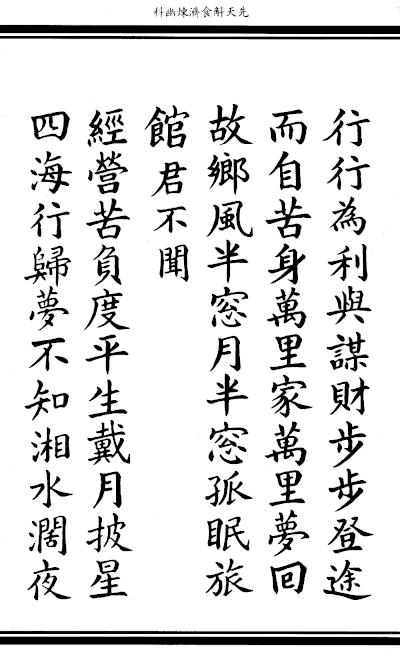 先天斛食濟煉幽科
行行為利與謀財步步登途
而自苦身萬里家萬里夢回
故鄉風半窓月半窓孤眠旅
館君不聞
經營苦負度平生戴月披星
四海行歸夢不知湘水濶夜